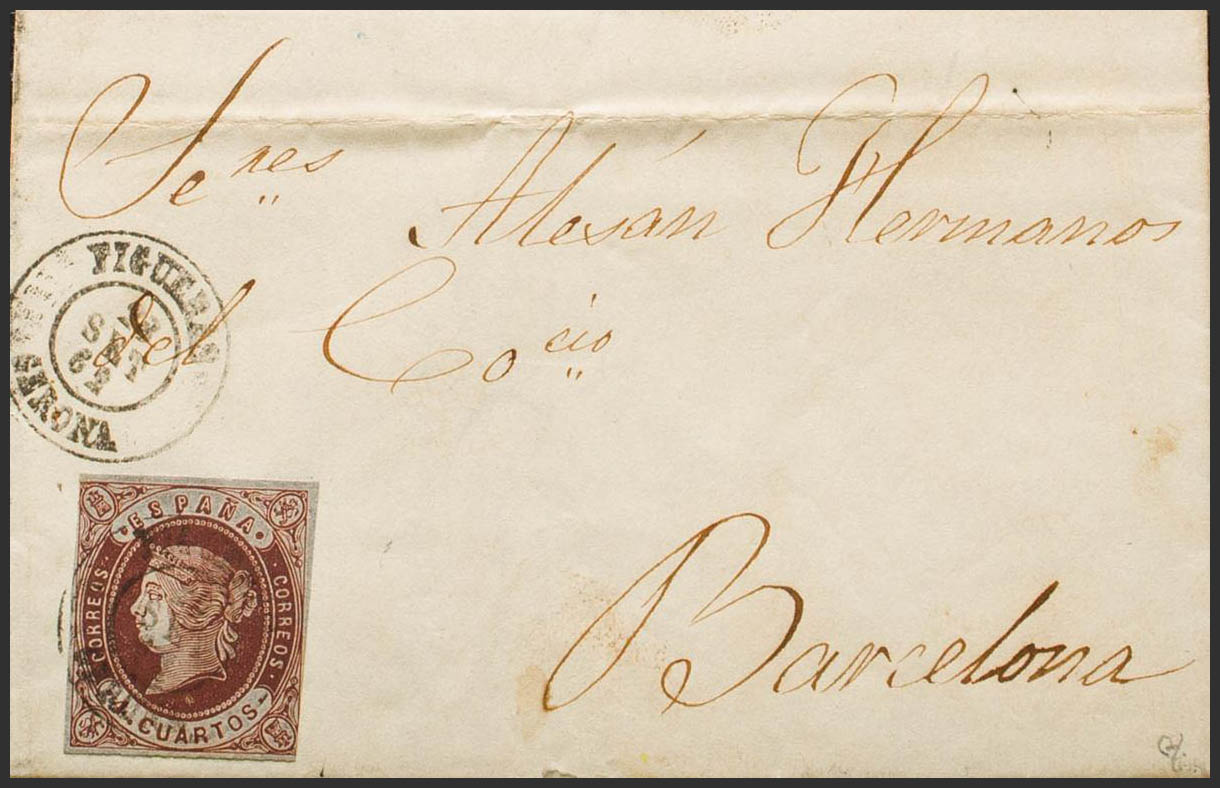 Se.nes Alesán Hermanos
del Co.cio
Barcelona
FIGUERAS
SET
62
GERONA
ESPAÑA
CORREOS
CORREOS
CUARTOS